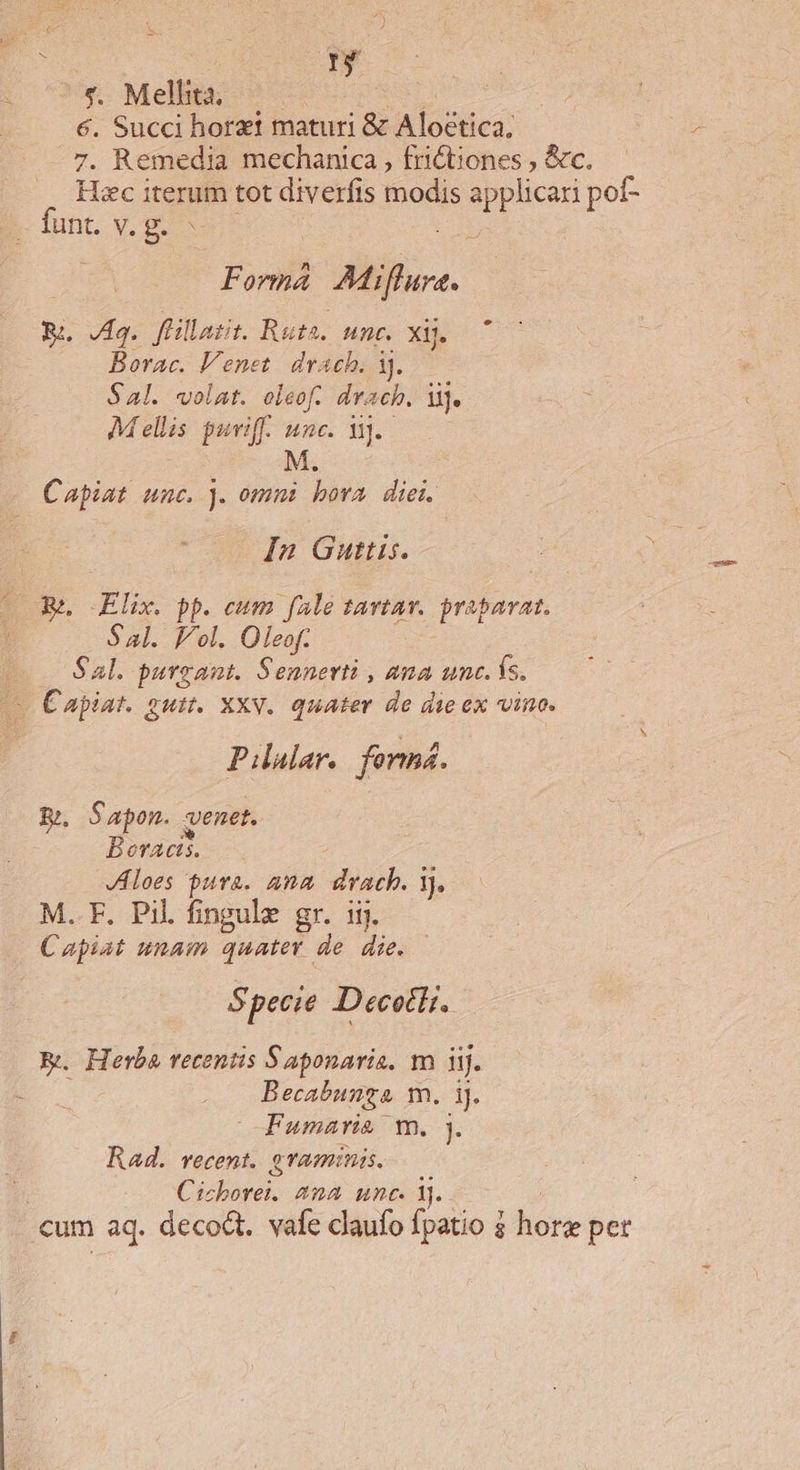 15
5. Mellita.
6. Succi horæi maturi & Aloëtica.
7. Remedia mechanica, frictiones, &c.
Hæc iterum tot diverſis modis applicari poſ-
ſunt. v. g.
Formâ Miſturæ.
℞. Aq. ſtillatit. Rutæ. unc. xij.
Borac. Venet drach. ij.
Sal. volat. oleoſ. drach. iij.
Mellis puriſſ. unc. iij.
M.
Capiat unc. j. omni hora diei.
In Guttis.
℞. Elix. pp. cum ſale tartar. præparat.
Sal. Vol. Oleoſ.
Sal. purgant. Sennerti, ana unc. ſs.
Capiat. gutt. xxv. quater de die ex vino.
Pilular. formâ.
℞. Sapon. venet.
Boracis.
Aloes puræ. ana drach. ij.
M. F. Pil. ſingulæ gr. iij.
Capiat unam quater de die.
Specie Decocti.
℞. Herbæ recentis Saponariæ. m iij.
Becabungæ m. ij.
Fumariæ m. j.
Rad. recent. graminis.
Cichorei. ana unc. ij.
cum aq. decoct. vaſe clauſo ſpatio ½ horæ per